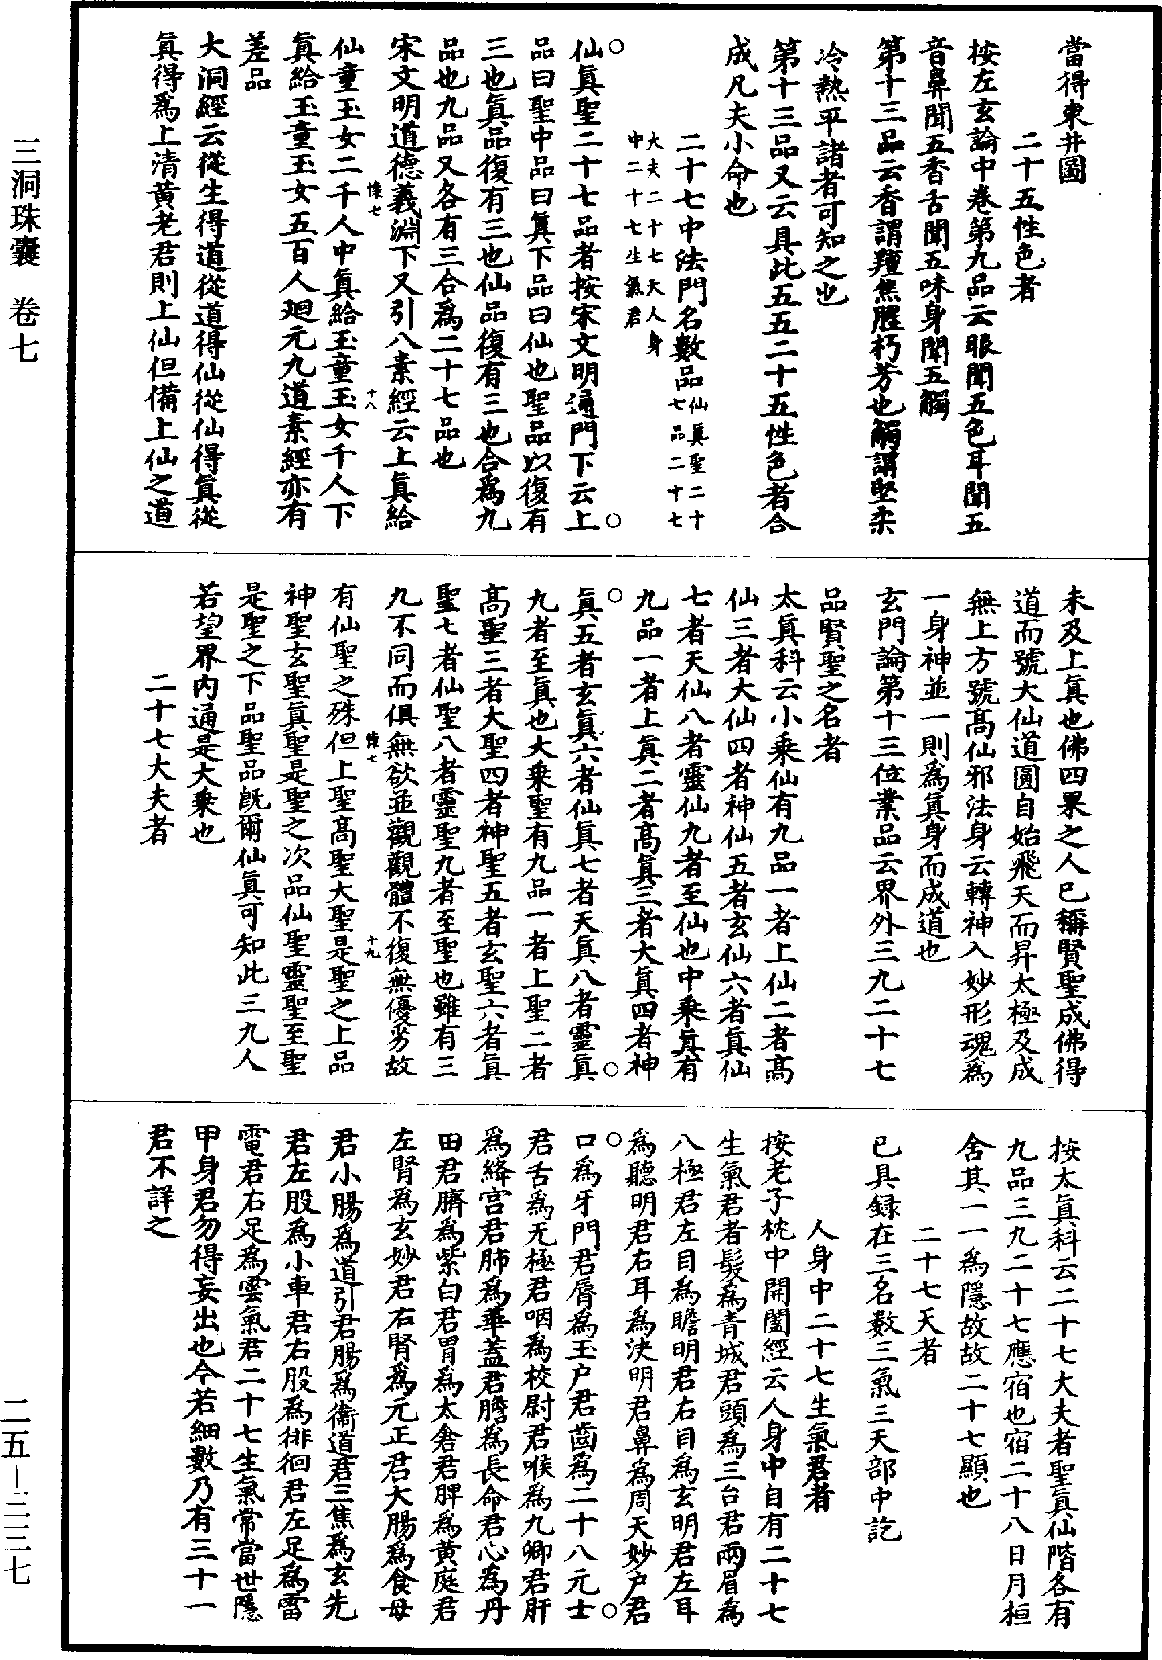 三洞珠囊　卷七
當得東井圖
二十五性色者
按左玄論中卷第九品云眼聞五色耳聞五
音鼻聞五香舌聞五味身聞五觸
第十三品云香謂羶焦腥朽芳也觸謂堅柔
冷熱平諸者可知之也
第十三品又云具此五五二十五性色者合
成凡夫小命也
二十七中法門名數品仙真聖二十七品二十七
大夫二十七天人身
中二十七生氣君
仙真聖二十七品者按宋文明通門下云上
品曰聖中品曰真下品曰仙也聖品以復有
三也真品復有三也仙品復有三也合為九
品也九品又各有三合為二十七品也
宋文明道德義淵下又引八素經云上真給
懷七　十八
仙童玉女二千人中真給玉童玉女千人下
真給玉童玉女五百人迴元九道素經亦有
差品
大洞經云從生得道從道得仙從仙得真從
真得為上清黃老君則上仙但備上仙之道
未及上真也佛四果之人已稱賢聖成佛得
道而號大仙道圓自始飛天而昇太極及成
無上方號高仙邪法身云轉神入妙形魂為
一身神並一則為真身而成道也
玄門論第十三位業品云界外三九二十七
品賢聖之名者
太真科云小乘仙有九品一者上仙二者高
仙三者大仙四者神仙五者玄仙六者真仙
七者天仙八者靈仙九者至仙也中乘真有
九品一者上真二者高真三者大真四者神
真五者玄真六者仙真七者天真八者靈真
九者至真也大乘聖有九品一者上聖二者
高聖三者大聖四者神聖五者玄聖六者真
聖七者仙聖八者靈聖九者至聖也雖有三
九不同而俱無欲並觀觀體不復無優劣故
懷七　十九
有仙聖之殊但上聖高聖大聖是聖之上品
神聖玄聖真聖是聖之次品仙聖靈聖至聖
是聖之下品聖品既爾仙真可知此三九人
若望界內通是大乘也
二十七大夫者
按太真科云二十七大夫者聖真仙階各有
九品三九二十七應宿也宿二十八日月桓
舍其一一為隱故故二十七顯也
二十七天者
已具録在三名數三氣三天部中訖
人身中二十七生氣君者
按老子枕中開闔經云人身中自有二十七
生氣君者髮為青城君頭為三台君兩眉為
八極君左目為瞻明君右目為玄明君左耳
為聽明君右耳為決明君鼻為周天妙户君
口為牙門君脣為玉户君齒為二十八元士
君舌為无極君咽為校尉君喉為九卿君肝
為絳宮君肺為華蓋君膽為長命君心為丹
田君臍為紫白君胃為太倉君脾為黃庭君
左腎為玄妙君右腎為元正君大腸為食母
君小腸為道引君腸為衞道君三焦為玄先
君左股為小車君右股為徘徊君左足為雷
電君右足為雲氣君二十七生氣常當世隱
甲身君勿得妄出也今若細數乃有三十一
君不詳之
二五—三三七